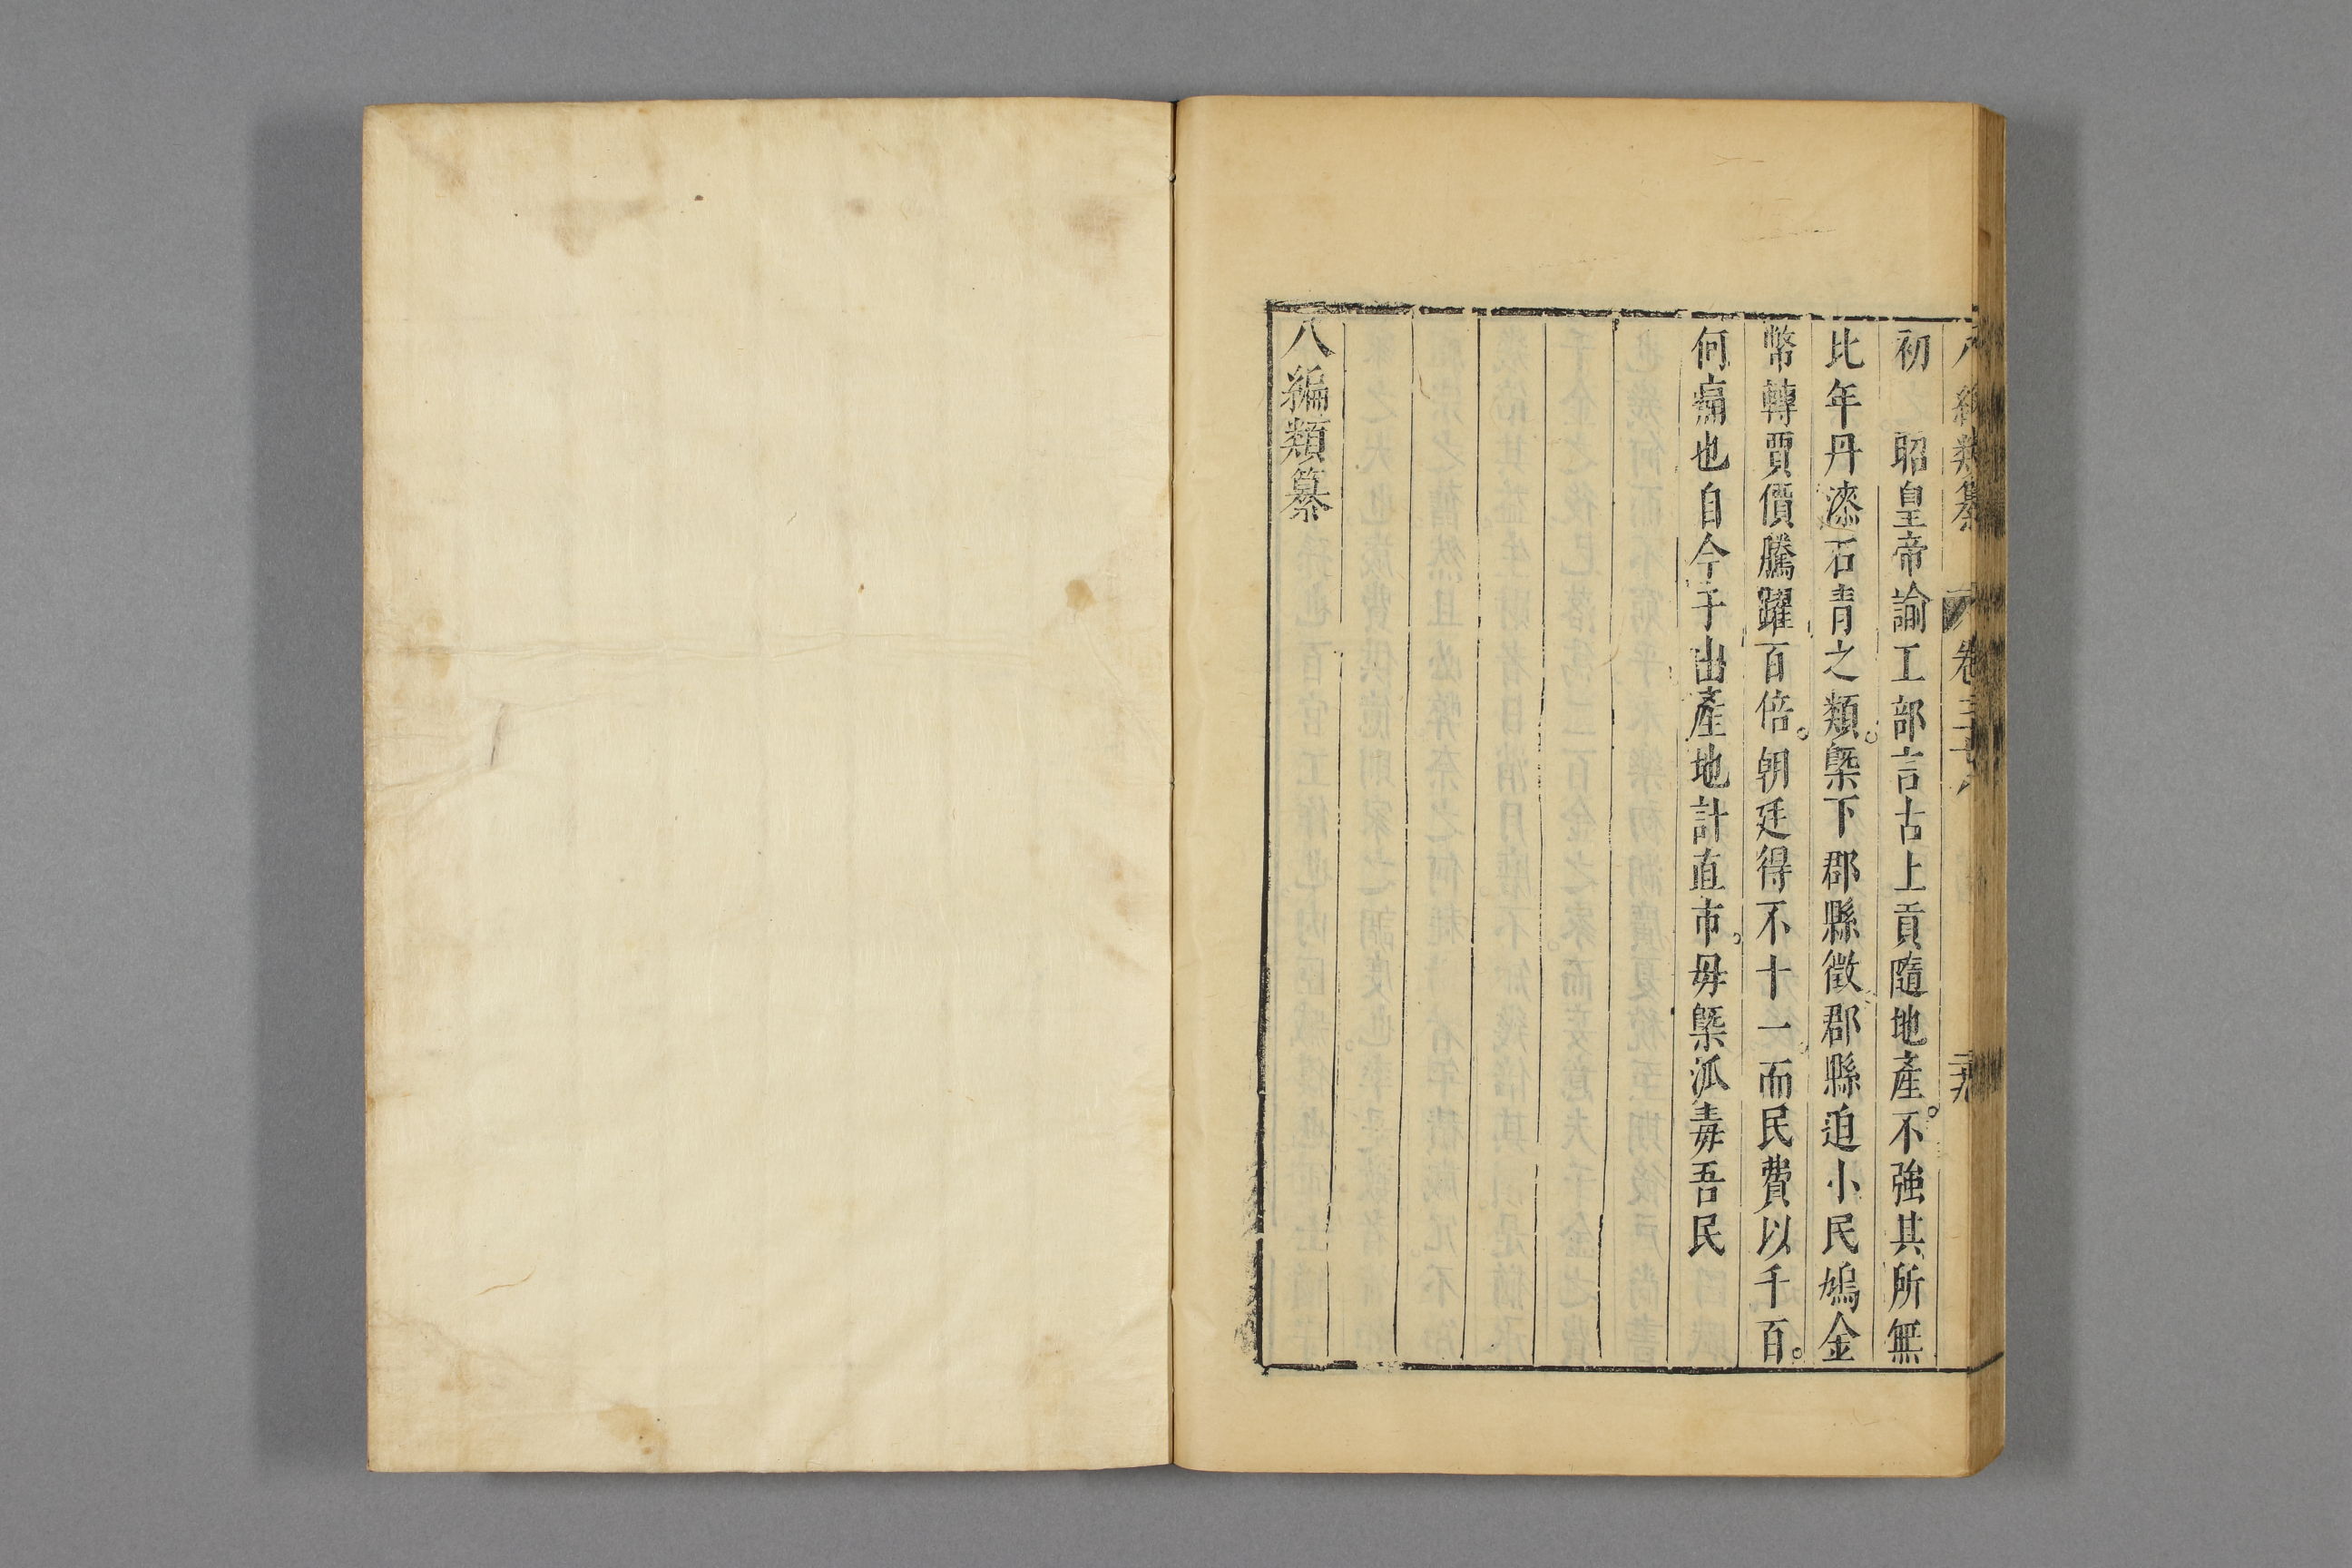 八編類纂 卷
初 昭皇帝諭工部言古上貢隨地產。不強其所無
比年丹漆石青之類。槩下郡縣徵郡縣迫小民鳩金
幣轉賈價騰躍百倍。朝廷得不十一而民費以千百。
何痛也自今于出產地計直市。毋槩泒毒吾民
八編類纂